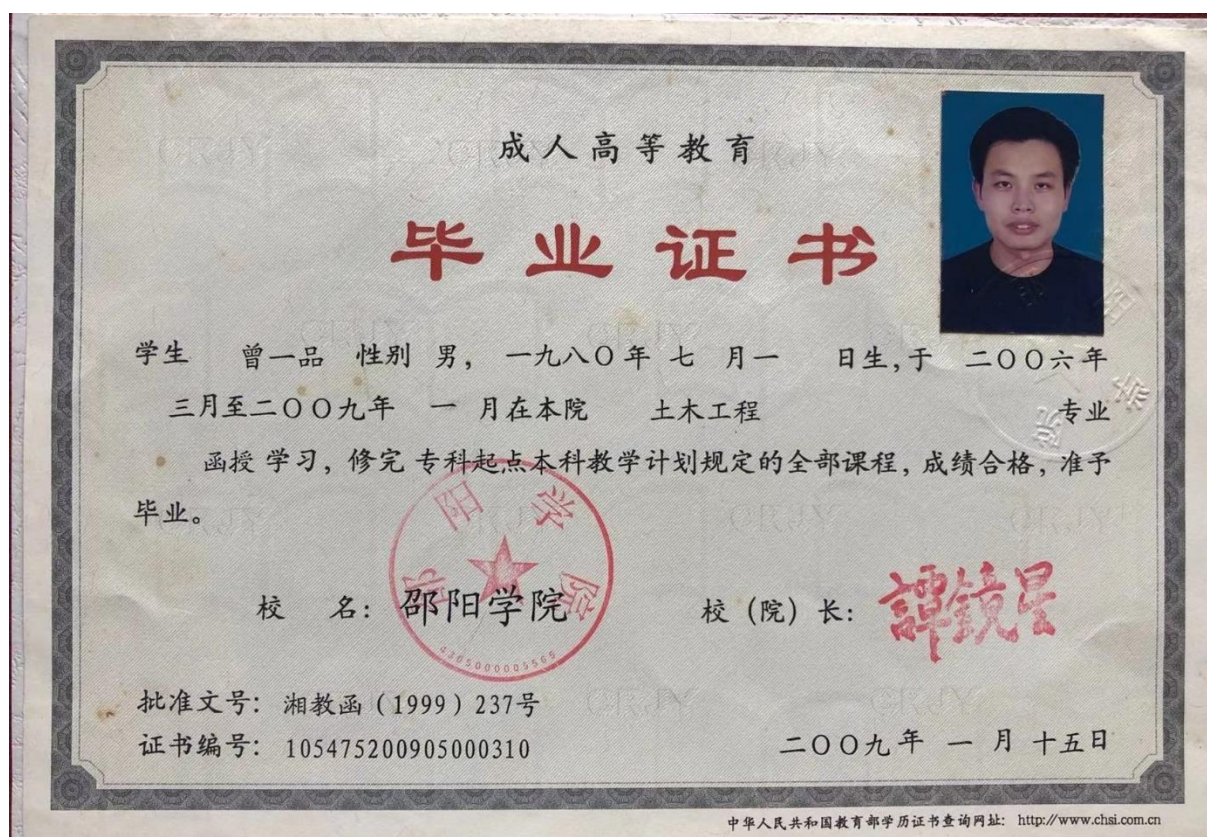 成人高等教育
毕业证书
学生 曾一品 性别 男, 一九八〇年 七 月一 日生,于 二〇〇六年
三月至二〇〇九年 一 月在本院 土木工程 专业
函授 学习, 修完 专科起点本科教学计划规定的全部课程, 成绩合格, 准予
毕业。
校 名: 邵阳学院
邵阳学院
4305000005565
校 (院) 长: 譚鏡星
批准文号: 湘教函(1999)237号
证书编号: 105475200905000310
二〇〇九年 一 月 十五日
中华人民共和国教育部学历证书查询网址: http://www.chsi.com.cn